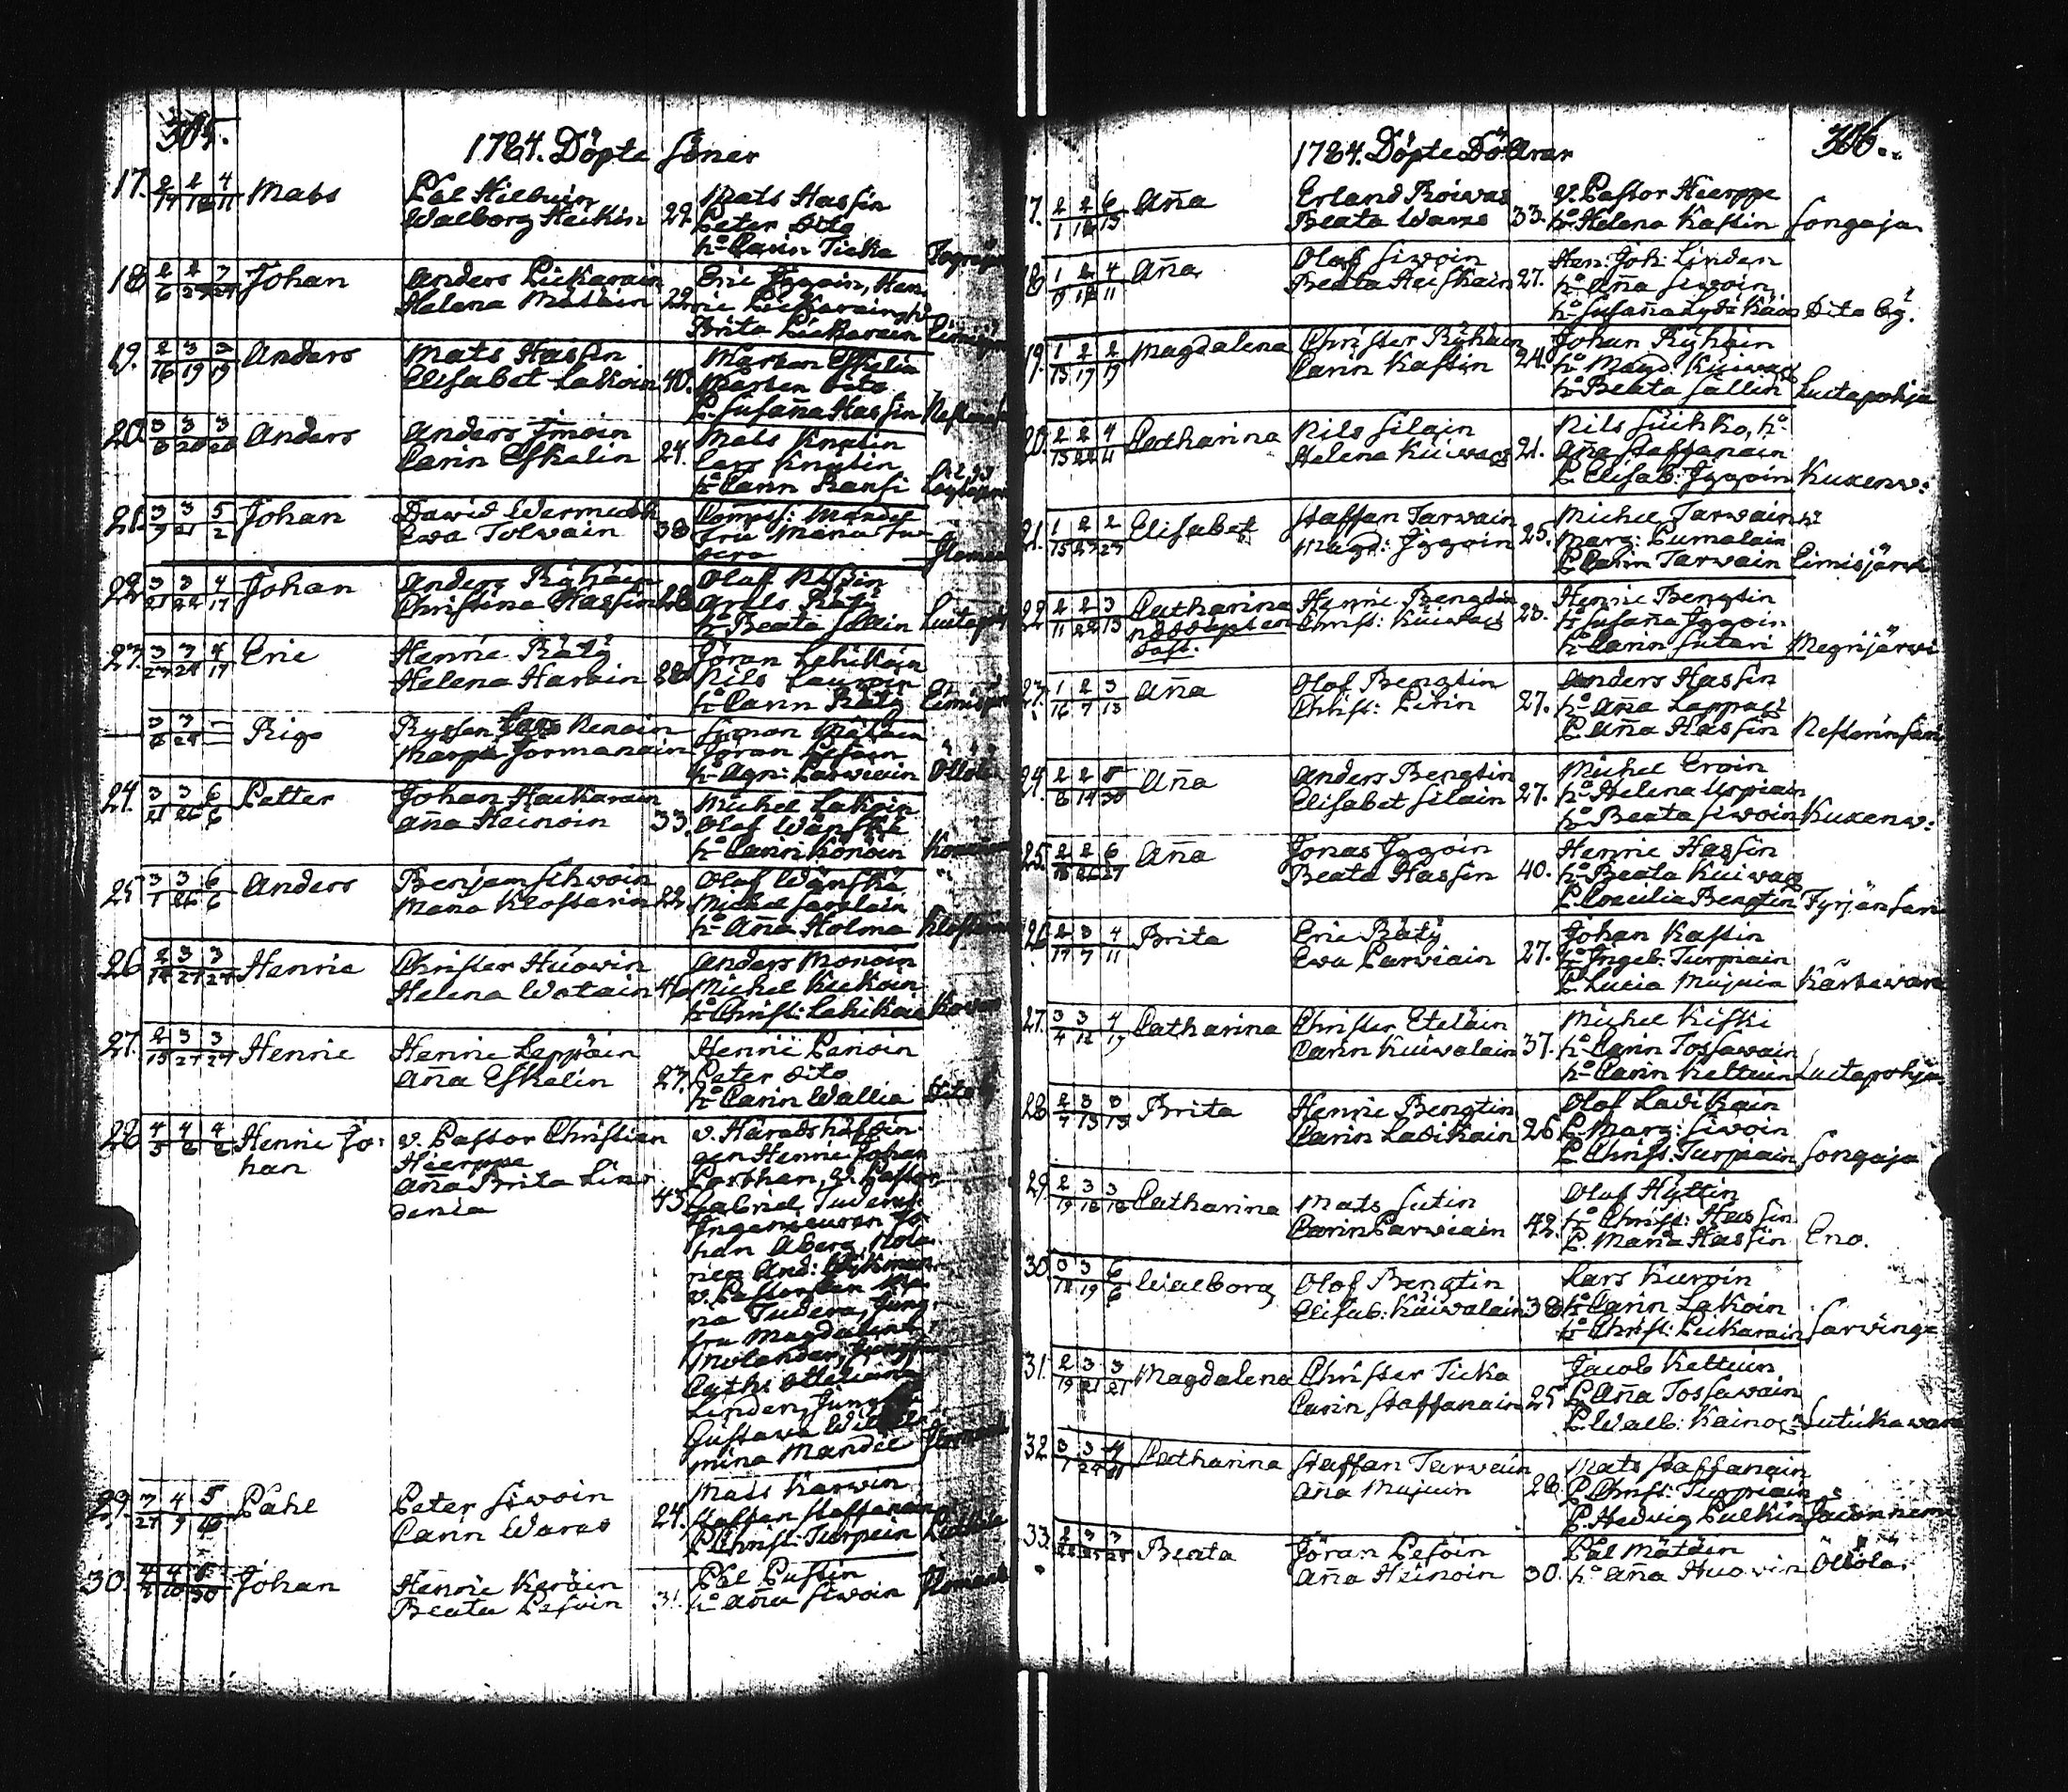 305.
1784. Döpte Söner
17. 2/14 2/18 4/11 Mats
Pål Hilduin
Walborg Heikin 29.
Mats Hassin
Peter dito
h:o Carin Ticka
18 2/6 Johan
Anders Pickarain
Helena Matlain 29.
Eric Iggoin, Hen
Brita Pickarain
19. 2/16 3/19 3/19 Anders
Mats Hassin
Elisabet Lakoin 40.
Martin Eskelin
Morten dito
P. Susaña Hassin
20. 3/3 3/20 3/20 Anders
Anders Imoin
Carin Eskelin 24.
Mats Knutin
Lars Knutin
h:o Carin Ransi
21. 3/9 3/21 5/2 Johan
Dawid Wermecth
Ewa Tolwain 38
Compss: Mandel
Fru Maria Tu-
dera
22 3/21 3/22 4/17 Johan
Anders Ryhäin
Christina Hassin 28
Olof Nissin
Anders Räty
h:o Beata Sallin
23. 3/23 3/24 4/17 Eric
Henric Räty
Helena Harlin 28
Jöran Lehikoin
Nils Laurin
h:o Carin Räty
3/6 3/25 Rigo
Ryssen Lars Renoin
Marpa Jormanain
Simon Mätäin
Jöran Lesoin
h:o Agn: Parwiain
24. 3/21 3/26 6/6 Petter
Johan Hackarain
Aña Heinoin 33.
Michel Lakoin
Olof Wänskä
h:o Carin Konoin
25 3/1 3/26 6/6 Anders
Benjam Sihwoin
Maria Klostarin 22
Olof Wänskä
Michel Sarelain
h:o Aña Holma
26 2/18 3/27 3/27 Henric
Christer Huowin
Helena Wotain 40
Anders Monoin
Michel Kukoin
h:o Christ: Lehikoin
27. 2/15 3/27 3/27 Henric
Henric Leppäin
Aña Eskelin 27.
Henric Parioin
Peter dito
h:o Carin Wallia
28 4/5 4/6 4/6 Henric Jo:
han
v. Pastor Christian
Hierppe
Aña Brita Lin-
denia 43
v. Häradshöfdin-
gen Henric Johan
Porthan, v. Pastor
Gabriel Tuderus
Ingenieuren Jo-
han Åberg, Nota-
rien And: Wikman
v. Pastorskan Ma-
ria Tudera, Jung-
fru Magdalena
Molander, Jungfru
Cath: Ottiliana
Linden, Jungfr
Gustava Wilhel-
mina Mandel
29. 3/27 4/9 Påhl
Peter Siwoin
Carin Waras 24.
Mats Karwin
Staffan Staffanain
P. Christ: Turpein
30. 4/10 Johan
Henric Keräin
Beata Lesoin 31.
Pål Pustin
h:o Aña Siwoin
306.
1784. Döpte Döttrar
17. 2/1 2/18 6/13 Aña
Erland Roiwas
Beata Waras 33.
v. Pastor Hierppe
h:o Helena Kassin Songaja
18 1/9 2/18 4/11 Aña
Olof Siwoin
Beata Heiskain 27.
Hen: Joh: Linden
h:o Aña Siwoin
19. 1/15 2/17 2/19 Magdalena
Christer Ryhäin
Carin Kassin 24.
Johan Ryhäin
h:o Magd: Kuiwas
h:o Beata Sallin Luctapohja
20. 2/15 2/22 4/11 Catharina
Nils Silain
Helena Kuiwas 21.
Nils Suihko, h:o
Aña Staffanain
P. Elisab: Iggoin Kuxenw:
21. 1/15 2/23 2/23 Elisabet
Staffan Tarwain
Magd: Iggoin 25.
Michel Tarwain h:o
Marg: Pumalain
P. Carin Tarwain Eimisjärwi
22 2/11 2/22 3/13 Catharina
nöddöpten
Henric Bengtin
Christ: Kuiwas 23.
Henric Bengtin
h:o Susaña Iggoin
h:o Carin Sutari Megrijärwi
23. 1/16 2/7 3/13 Aña
Olof Bengtin
Christ: Pirin 27.
Anders Hassin
h:o Aña Lappas
P. Aña Hassin
24. 2/8 2/14 Aña
Anders Bengtin
Elisabet Silain 27.
Michel Eroin
h:o Helena Urpiain
h:o Beata Siwoin Kuxenw:
25. 2/18 2/26 6/27 Aña
Jonas Iggoin
Beata Hassin 40.
Henric Hassin
h:o Beata Kuiwas
P. Coecilia Bengtin Tyrjänsari
26 2/17 3/7 4/11 Brita
Eric Räty
Ewa Parwiain 27.
Johan Kassin
h:o Ingeb: Turpiain
P. Lucia Mujuin
27. 3/4 3/12 4/19 Catharina
Christer Eteläin
Carin Kuiwalain 37.
Michel Kiski
h:o Carin Tossawain
h:o Carin Kettuin Luctapohja
28 2/7 3/13 3/13 Brita
Henric Bengtin
Carin Ladikain 26
Olof Ladikain
P. Marg: Siwoin
P. Christ: Turpiain Songaja
29. 2/19 3/18 3/18 Catharina
Mats Sutin
Carin Parwiain 42.
Olof Hyttin
h:o Christ: Hassin
P. Maria Hassin Eno.
30. 3/19 6/6 Walborg
Olof Bengtin
Elisab: Kuiwalain 38
Lars Kurvin
h:o Carin Lakoin
h:o Christ: Pickarain Sarwinge
31. 2/19 3/21 3/21 Magdalena
Christer Ticka
Carin Staffanain 25
Jacob Kettuin
P. Aña Tossawain
P. Walb: Kainos Lutickawara
32. 3/1 3/24 Catharina
Staffan Tarwain
Aña Mujuin 26
Mats Staffanain
P. Christ: Turpiain
P. Hedwig Pulkin
33. Beata
Jöran Lesoin
Aña Heinoin 30.
Pål Mätäin
h:o Aña Huowin Öllölä.